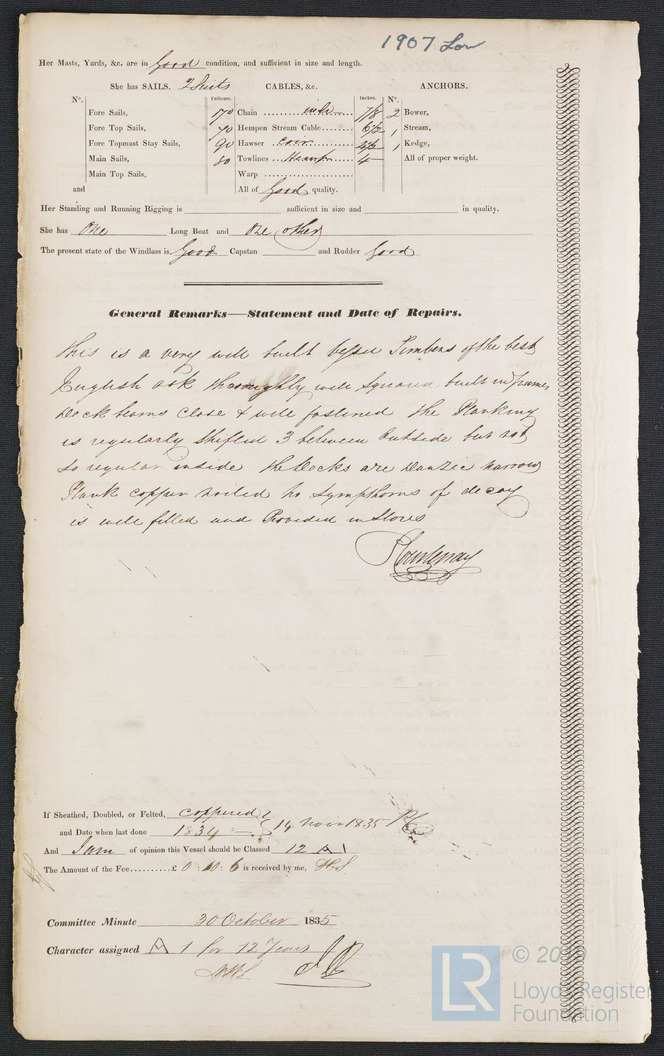 1907 Lon
Her Masts, Yards, &c. are in Good condition, and sufficient in size and length.
She has SAILS. 2 Suits CABLES, &c. ANCHORS.
Nº. Fathoms. Inches. Nº.
Fore Sails, 70 Chain 7/8 2 Bower,
Fore Top Sails, 70 Hempen Stream Cable 6½ 1 Stream,
Fore Topmast Stay Sails, 90 Hawser Coir 1 Kedge,
Main Sails, 80 Towlines 4 All of proper weight.
Main Top Sails, Warp
and All of Good quality.
Her Standing and Running Rigging is sufficient in size and in quality.
She has One Long Boat and One other
The present state of the Windlass is Good Capstan and Rudder Good
General Remarks—Statement and Date of Repairs.
This is a very well built Timbers of the best
English oak thoroughly well Squared built in frames
Deck beams close & well fastened the Planking
is regularly Shifted 3 between outside but not
so regular inside the Decks are Danzic narrow
Plank copper no Symphoms of decay
is well filled and Provided in Stores
Courtenay
If Sheathed, Doubled, or Felted, coppered
and Date when last done 1834 14 Novr 1835
And I am of opinion this Vessel should be Classed 12 A 1
The Amount of the Fee £ 0 .. 10 .. 6 is received by me, H.S.
Committee Minute 30 October 1835
Character assigned A 1 for 12 Years
LR © 20
Lloyd's Register
Foundation